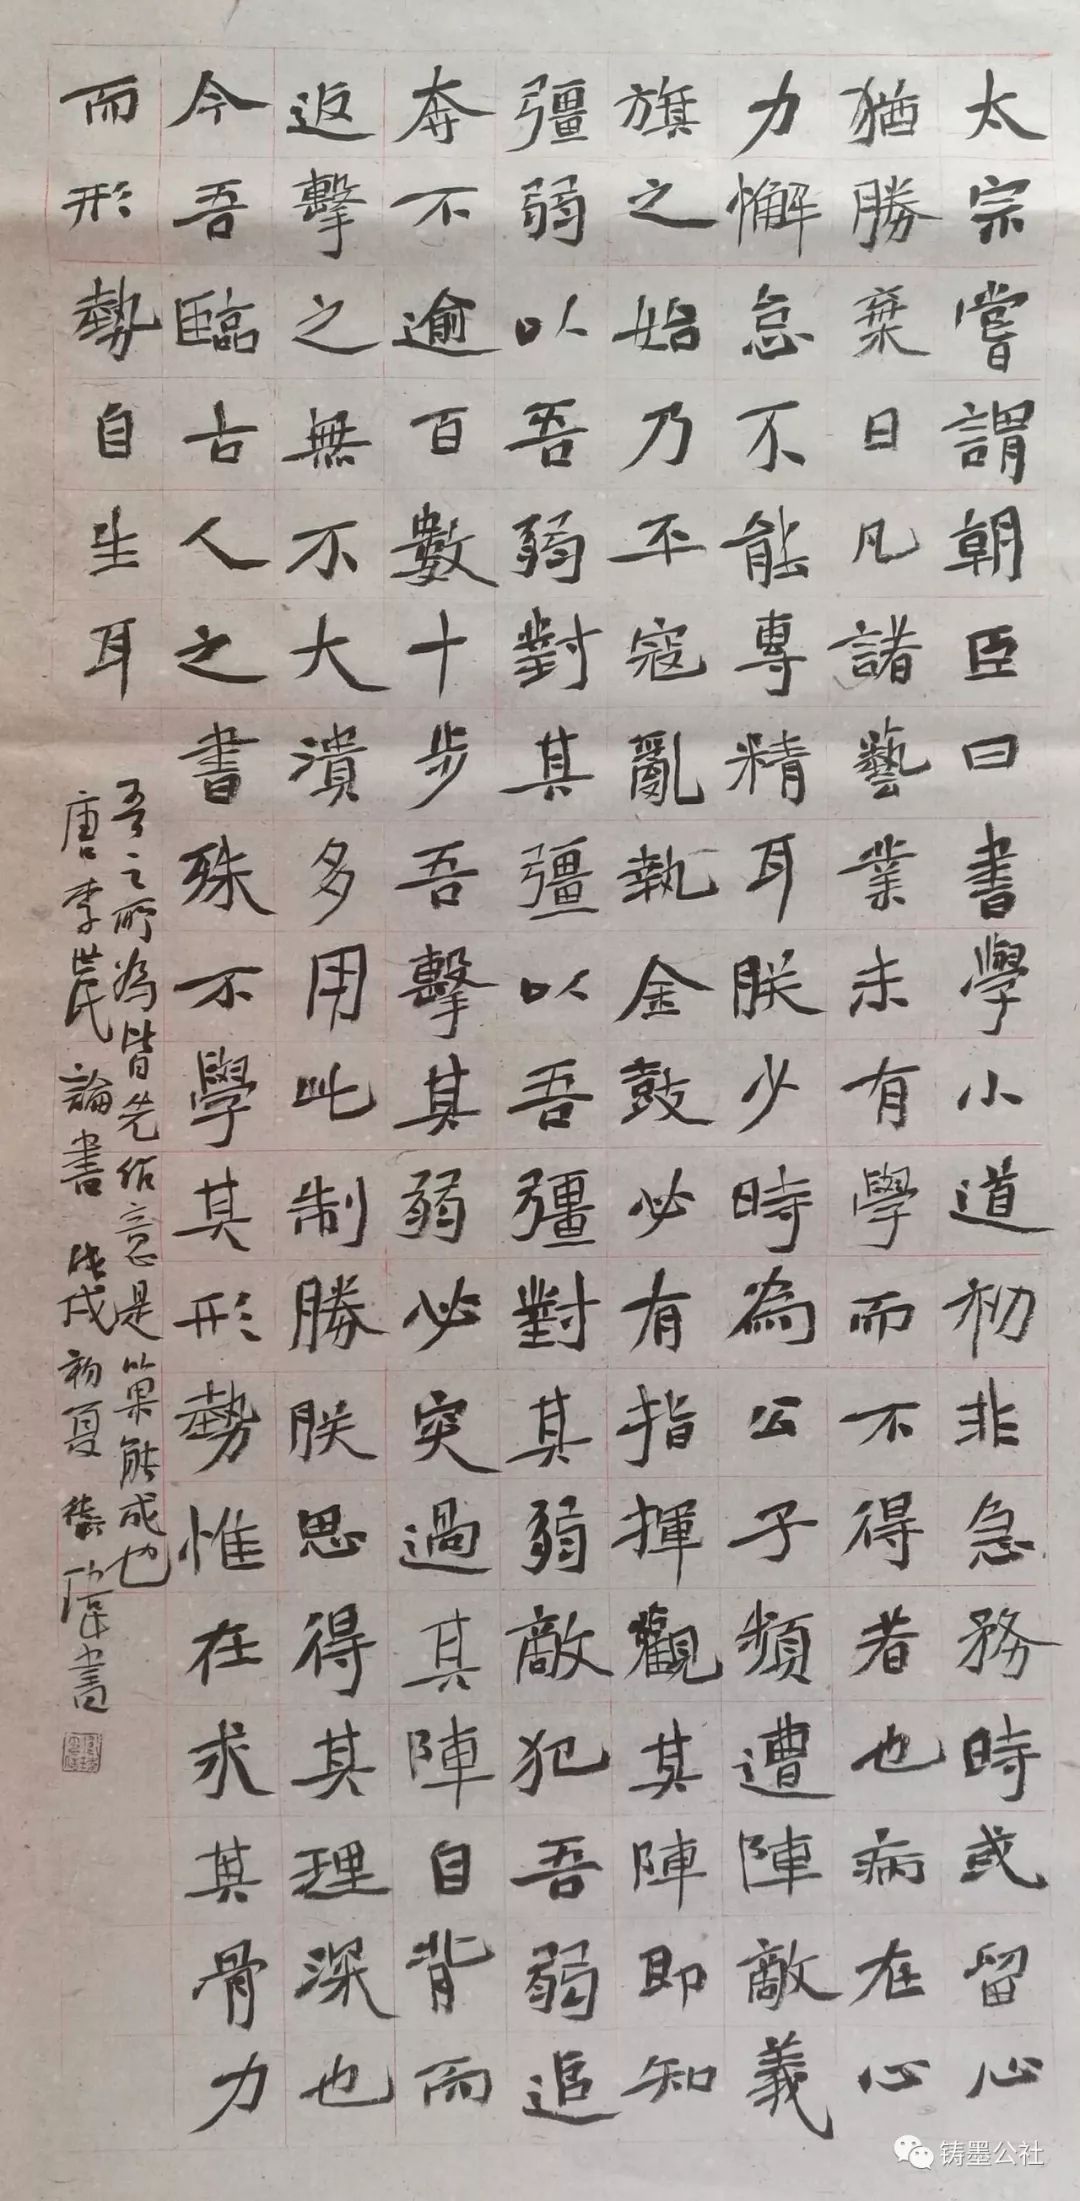 太宗嘗謂朝臣曰書學小道初非急務時或留心
猶勝棄日凡諸藝業未有學而不得者也病在心
力懈怠不能專精耳朕少時為公子頻遭陣敵義
旗之始乃平寇亂執金鼓必有指揮觀其陣即知
彊弱以吾弱對其彊以吾彊對其弱敵犯吾弱追
奔不逾百數十步吾擊其弱必突過其陣自背而
返擊之無不大潰多用此制勝朕思得其理深也
今吾臨古人之書殊不學其形勢惟在求其骨力
而形勢自生耳
吾之所為皆先作意是以果能成也
唐李世民論書 戊戌初夏 書
铸墨公社